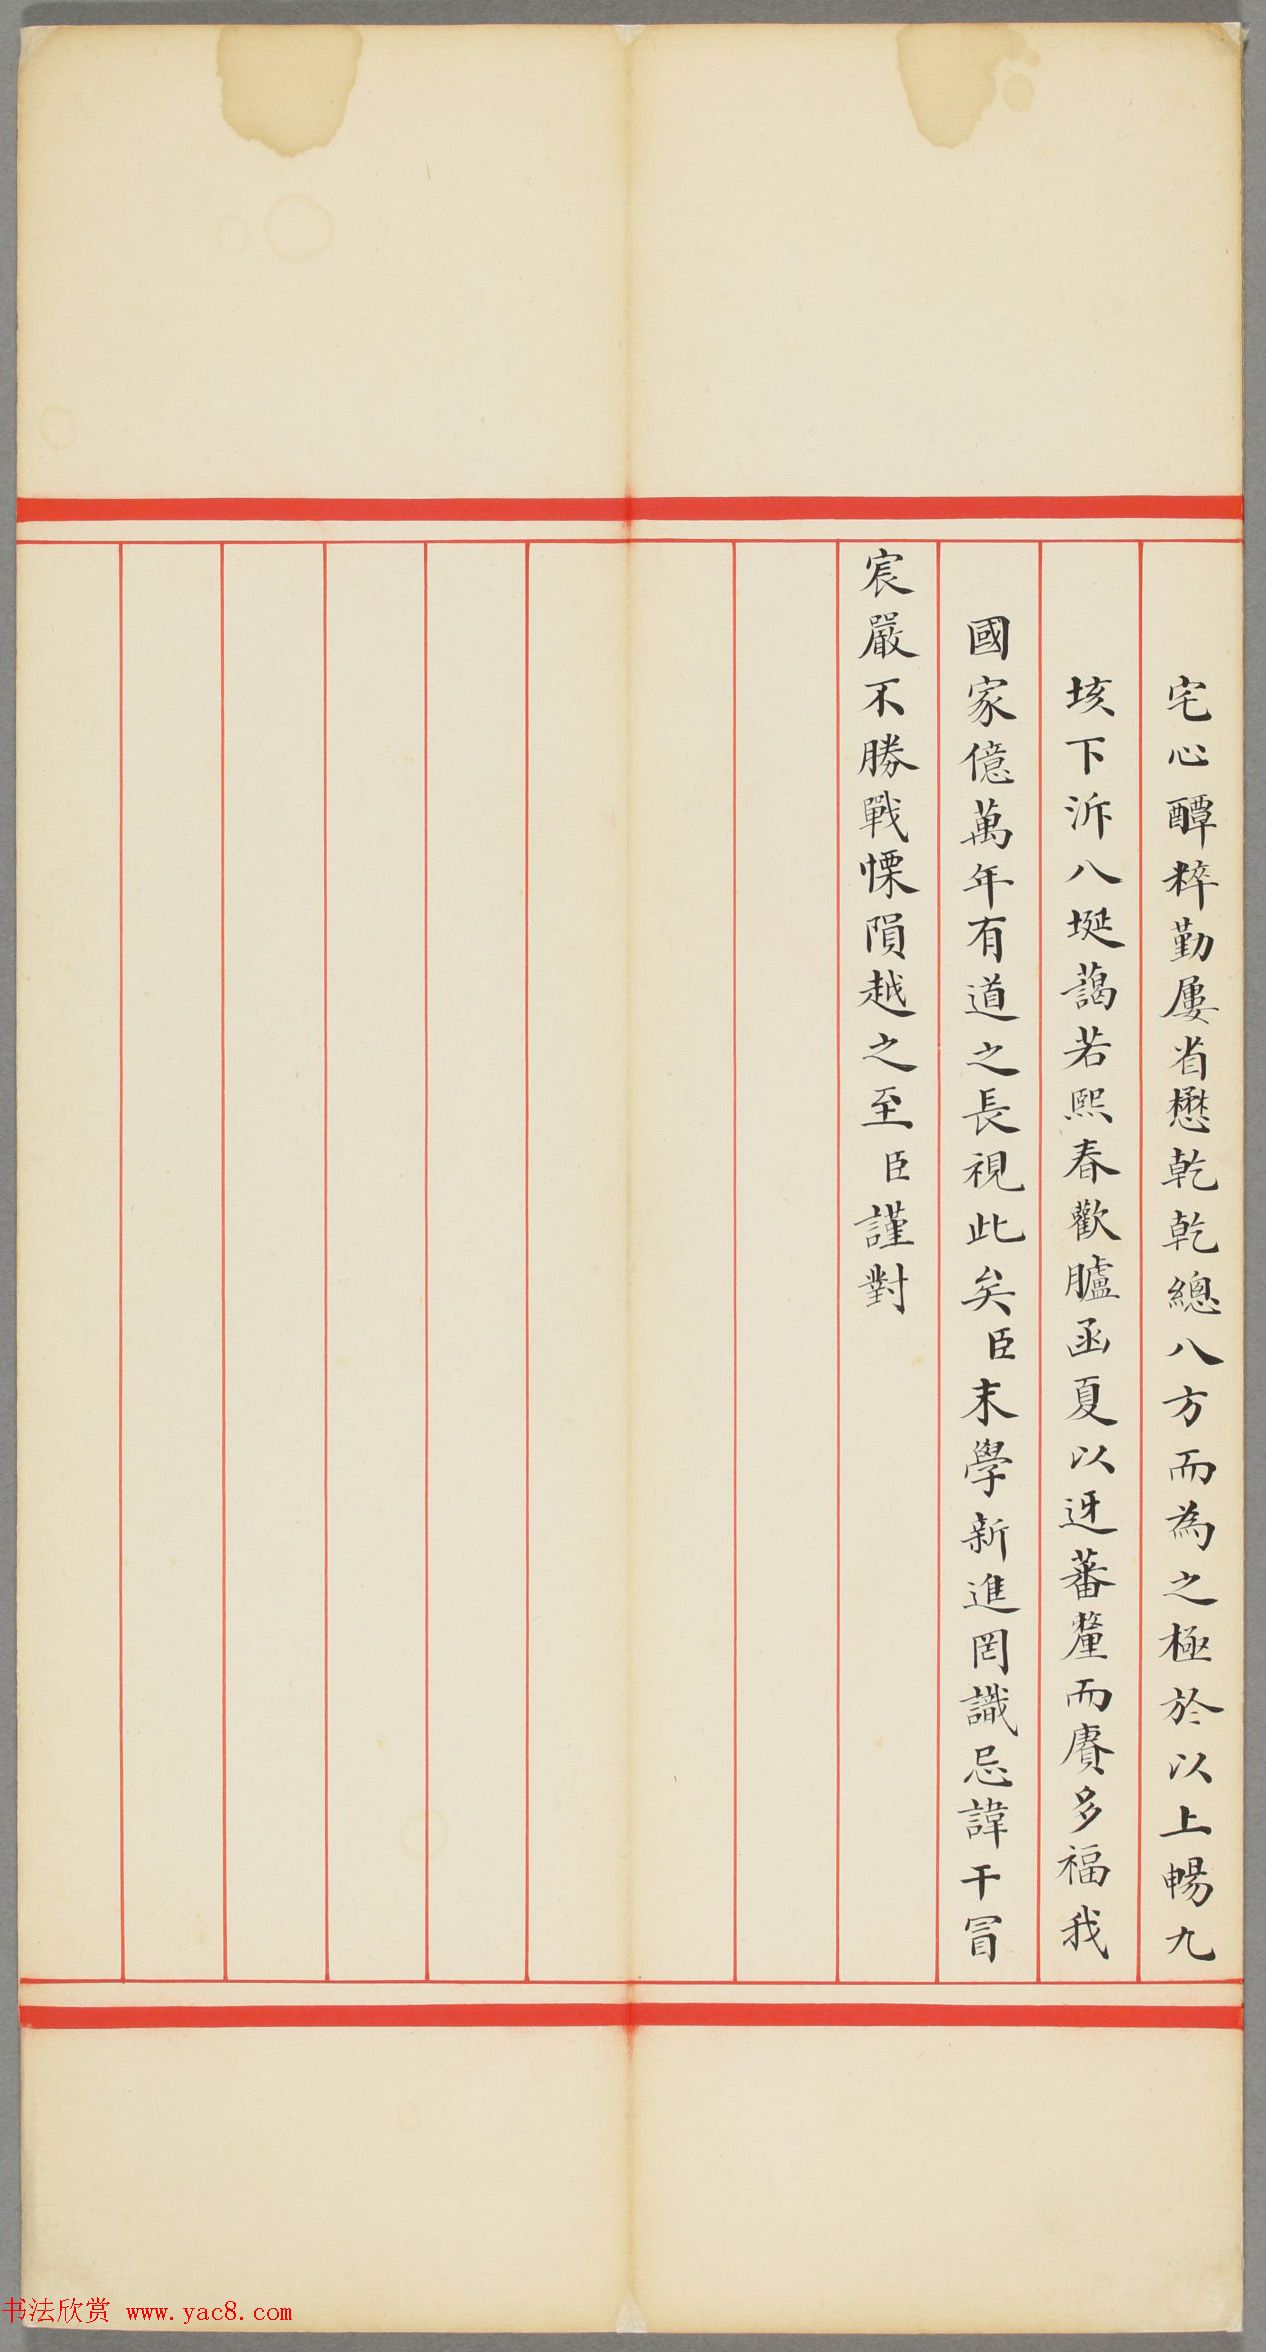 宅心醰粹勤屢省懋乾乾總八方而為之極於以上暢九
垓下泝八埏藹若熙春歡臚函夏以迓蕃釐而賡多福我
國家億萬年有道之長視此矣臣末學新進罔識忌諱干冒
宸嚴不勝戰慄隕越之至臣謹對
书法欣赏 www.yac8.com